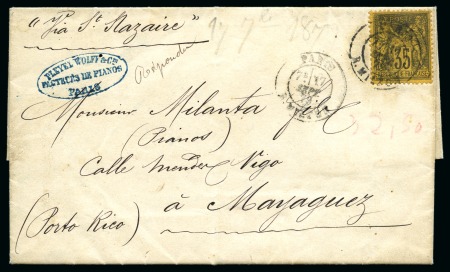 "Via St Nazaire"
PLEYEL WOLFF & Cie
FACTEURS DE PIANOS
PARIS
Répondu
PARIS
35
Monsieur Milanta
(Pianos)
Calle Mendez Vigo
(Porto Rico)
à Mayaguez